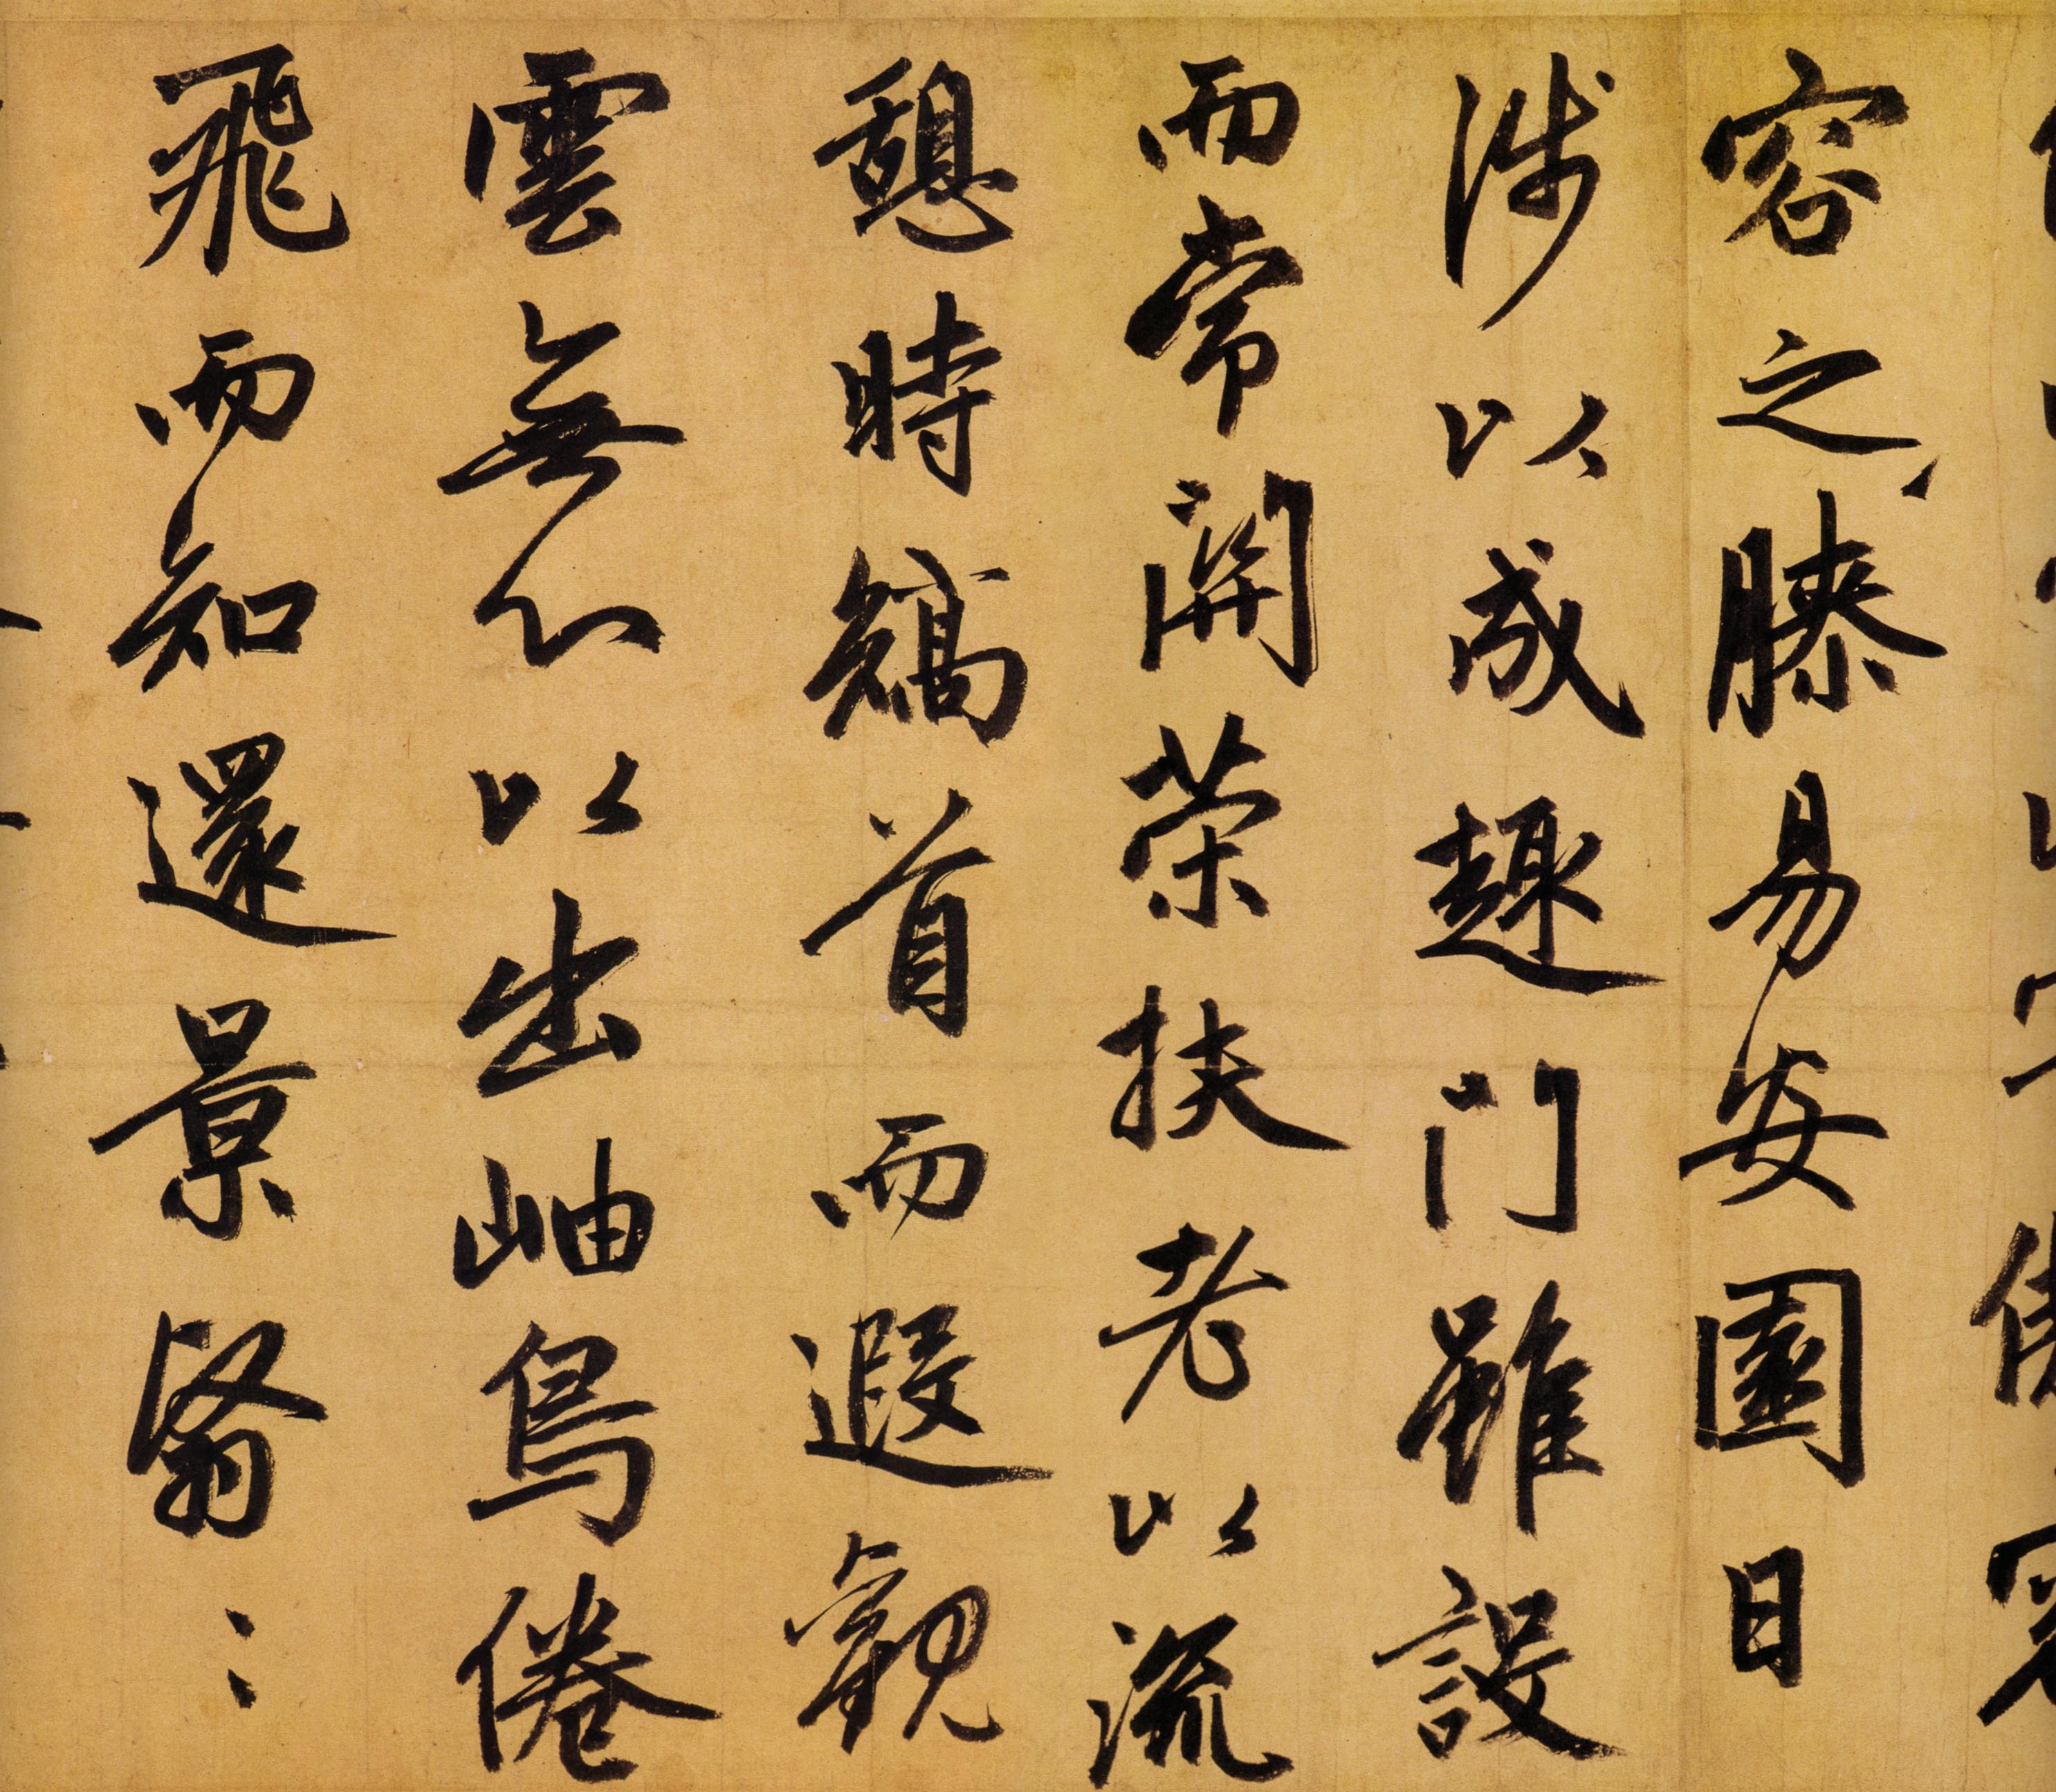 容之膝易安園日
涉以成趣門雖設
而常開策扶老以流
憩時矯首而遐觀
雲無心以出岫鳥倦
飛而知還景翳〻